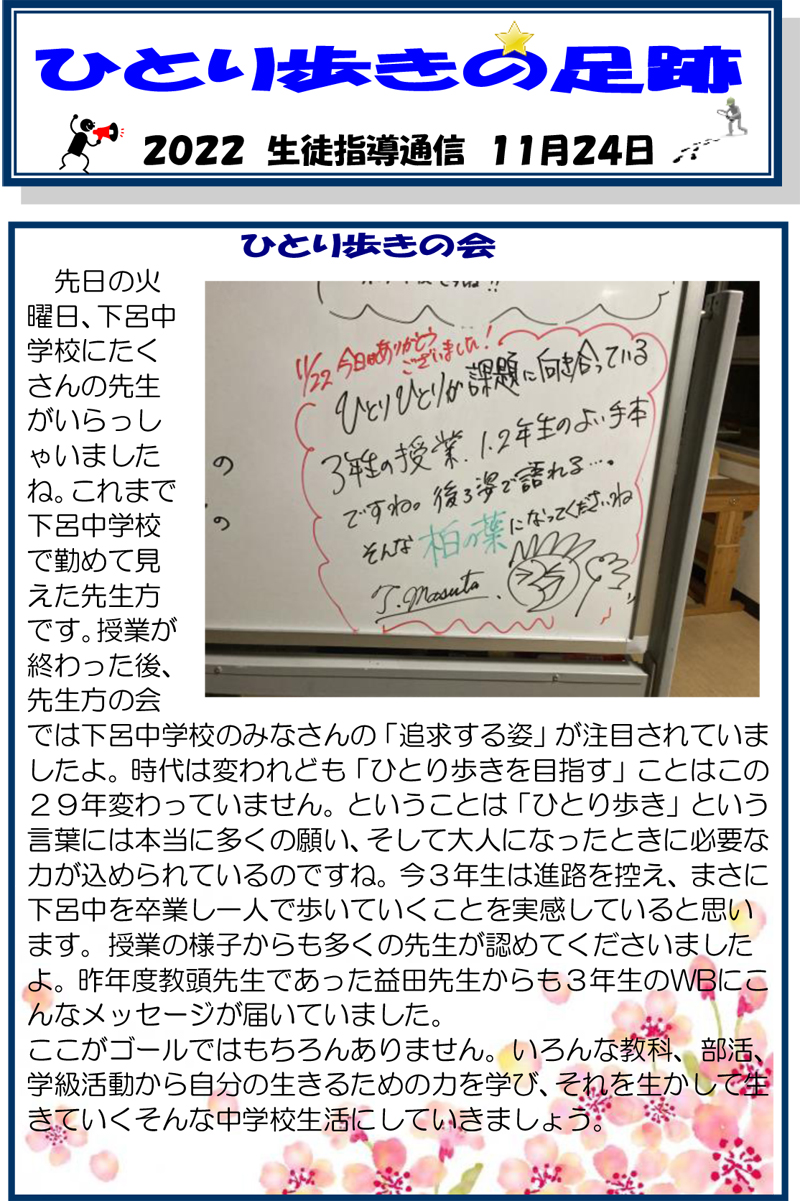 ひとり歩きの足跡
2022 生徒指導通信 11月24日
ひとり歩きの会
先日の火
曜日、下呂中
学校にたく
さんの先生
がいらっし
ゃいました
ね。これまで
下呂中学校
で勤めて見
えた先生方
です。授業が
終わった後、
先生方の会
11/22 今日はありがとう
ございました!
ひとりひとりが課題に向き合っている
3年生の授業、1.2年生のよい手本
ですね。後ろ姿で語れる…。
そんな柏の葉になってくださいね
T.Masuta
の
の
では下呂中学校のみなさんの「追求する姿」が注目されていま
したよ。時代は変われども「ひとり歩きを目指す」ことはこの
29年変わっていません。ということは「ひとり歩き」という
言葉には本当に多くの願い、そして大人になったときに必要な
力が込められているのですね。今3年生は進路を控え、まさに
下呂中を卒業し一人で歩いていくことを実感していると思い
ます。授業の様子からも多くの先生が認めてくださいました
よ。昨年度教頭先生であった益田先生からも3年生のWBにこ
んなメッセージが届いていました。
ここがゴールではもちろんありません。いろんな教科、部活、
学級活動から自分の生きるための力を学び、それを生かして生
きていくそんな中学校生活にしていきましょう。